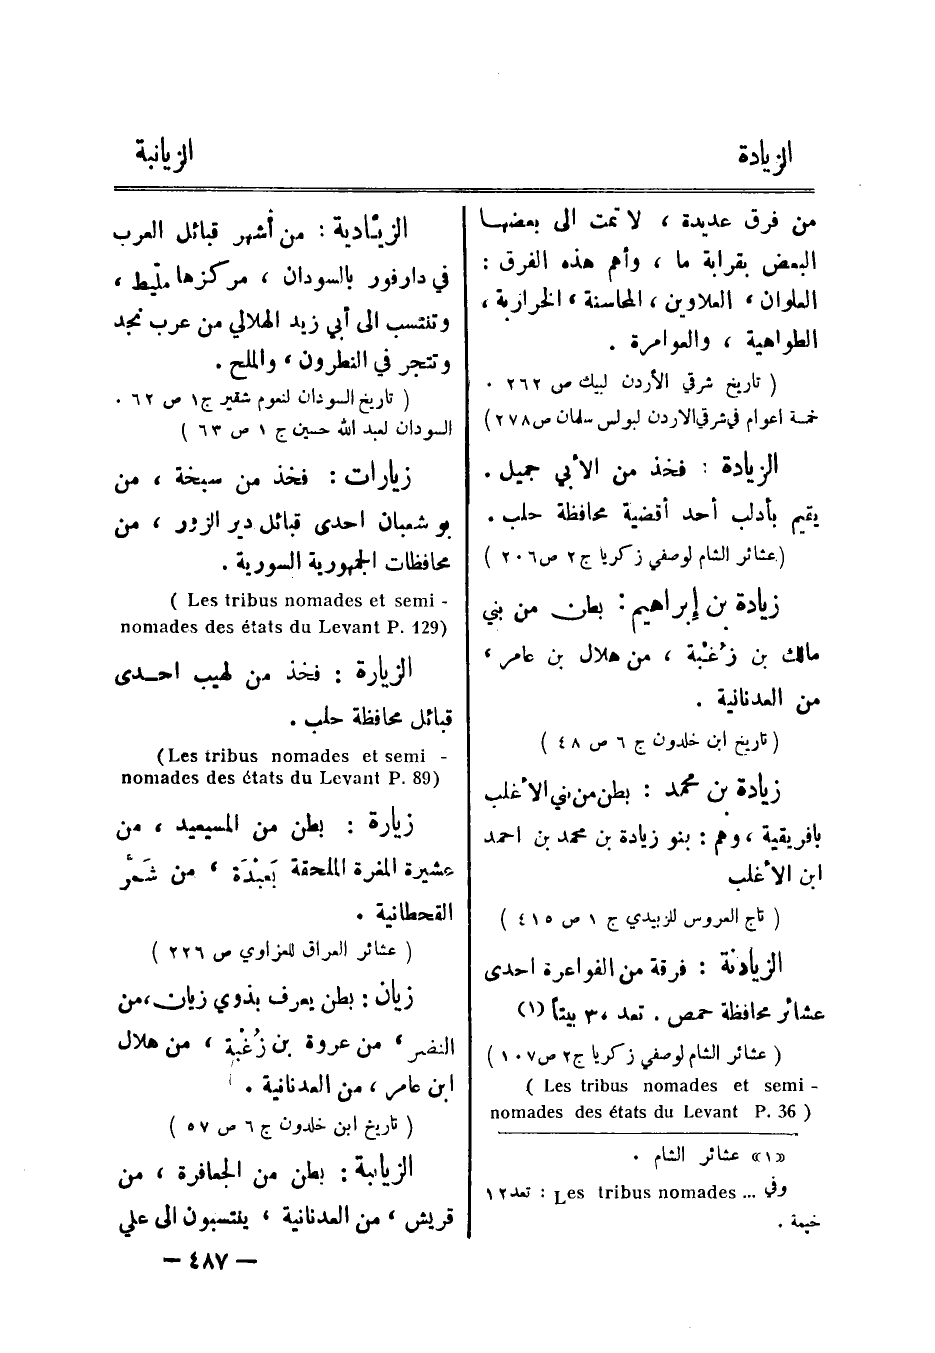 الزيادة
الزيانبة
من فرق عديدة ، لا تمت الى بعضها
البعض بقرابة ما ، وأهم هذه الفرق :
العلوان ، العلاوين ، المحاسنة ، الخرازية ،
الطواهية ، والعوامرة .
( تاريخ شرقي الأردن لبيك ص ٢٦٢ .
خمسة اعوام في شرقي الاردن لبولس سلمان ص ٢٧٨ )
الزيادة : فخذ من الأبي جميل .
يقيم بأدلب أحد أقضية محافظة حلب .
( عشائر الشام لوصفي زكريا ج ٢ ص ٢٠٦ )
زيادة بن إبراهيم : بطن من بني
مالك بن زُغْبة ، من هلال بن عامر ،
من العدنانية .
( تاريخ ابن خلدون ج ٦ ص ٤٨ )
زيادة بن محمد : بطن من بني الأغلب
بافريقية ، وهم : بنو زيادة بن محمد بن احمد
ابن الأغلب
( تاج العروس للزبيدي ج ١ ص ٤١٥ )
الزيادنة : فرقة من الفواعرة احدى
عشائر محافظة حمص . تعد ٣٠ بيتاً (١)
( عشائر الشام لوصفي زكريا ج ٢ ص ١٠٧ )
( Les tribus nomades et semi -
nomades des états du Levant P. 36 )
«١» عشائر الشام .
وفي ... Les tribus nomades : تعد ١٢
خيمة .
الزيّادية : من أشهر قبائل العرب
في دارفور بالسودان ، مركزها مليط ،
وتنتسب الى أبي زيد الهلالي من عرب نجد
وتتجر في النطرون ، والملح .
( تاريخ السودان لنعوم شقير ج ١ ص ٦٢ .
السودان لعبد الله حسين ج ١ ص ٦٣ )
زيارات : فخذ من سبخة ، من
بو شعبان احدى قبائل دير الزور ، من
محافظات الجمهورية السورية .
( Les tribus nomades et semi -
nomades des états du Levant P. 129)
الزيارة : فخذ من لهيب احدى
قبائل محافظة حلب .
(Les tribus nomades et semi -
nomades des états du Levant P. 89)
زيارة : بطن من المسيعيد ، من
عشيرة المفرة الملحقة بَعْبْدَة ، من شَمَّر
القحطانية .
( عشائر العراق للعزاوي ص ٢٢٦ )
زيان : بطن يعرف بذوي زيان ، من
النضر ، من عروة بن زُغْبة ، من هلال
ابن عامر ، من العدنانية .
( تاريخ ابن خلدون ج ٦ ص ٥٧ )
الزيانبة : بطن من الجعافرة ، من
قريش ، من العدنانية ، ينتسبون الى علي
— ٤٨٧ —